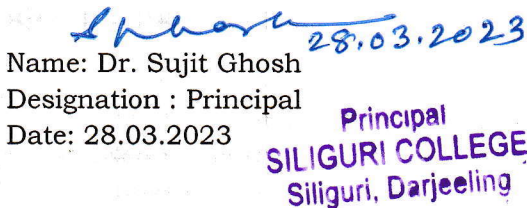 28.03.2023
Name: Dr. Sujit Ghosh
Designation : Principal
Date: 28.03.2023
Principal
SILIGURI COLLEGE
Siliguri, Darjeeling